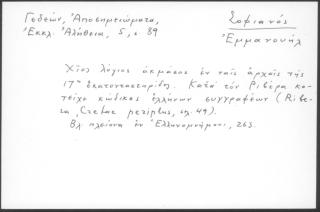 Γεδεών, Ἀποσημειώματα,
Ἐκκλ. Ἀλήθεια, 5, σ. 89
Σοφιανός
Ἐμμανουήλ
Χῖος λόγιος ἀκμάσας ἐν ταῖς ἀρχαῖς τῆς
17ης ἑκατονταετηρίδος. Κατὰ τὸν Ρίβερα κα-
τεῖχε κώδικας ἑλλήνων συγγραφέων (Ribe-
ra, Cretae periplus, σελ. 49).
Βλ. πλείονα ἐν Ἑλληνομνήμονι, 263.